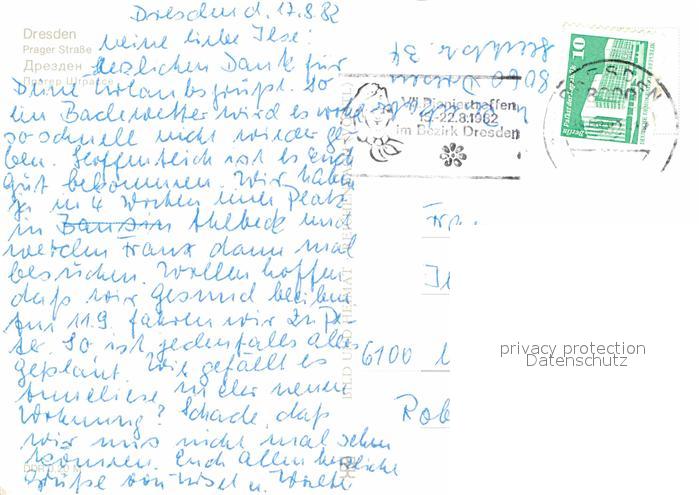 Dresden d. 17.8.82
Dresden
Prager Straße
Дрезден
Meine liebe Ilse!
Herzlichen Dank für
Deine Urlaubsgrüße. So
ein Badewetter wird es wohl
so schnell nicht wieder ge-
ben. Hoffentlich ist es Euch
gut bekommen. Wir haben
ja in 4 Wochen einen Platz
in Bansin Ahlbeck und
werden Franz dann mal
besuchen. Wollen hoffen
daß wir gesund bleiben
Am 11.9. fahren wir zu Pe-
ter. So ist jedenfalls alles
geplant. Wie gefällt es
Anneliese in der neuen
Wohnung? Schade, daß
wir uns nicht mal sehen
können. Euch allen herzliche
Grüße von Lisel u. Walter
8060 Dresden
VII. Pioniertreffen
-22.8.1982
im Bezirk Dresden
DRESDEN
10
DDR
Berlin
Palast der Republik
BILD UND HEIMAT REICHENBACH
Frn.
6100
Rob
privacy protection
Datenschutz